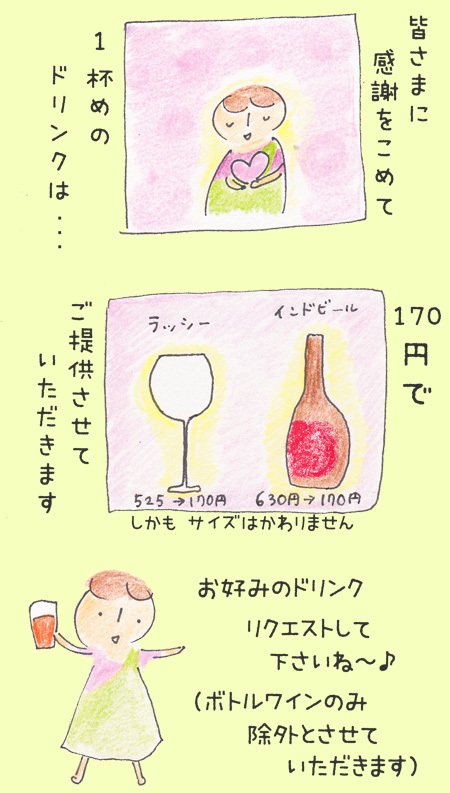 皆さまに
感謝をこめて
1杯めの
ドリンクは・・・
170円で
ラッシー
インドビール
525→170円
630円→170円
ご提供させて
いただきます
しかも サイズはかわりません
お好みのドリンク
リクエストして
下さいね～♪
(ボトルワインのみ
除外とさせて
いただきます)